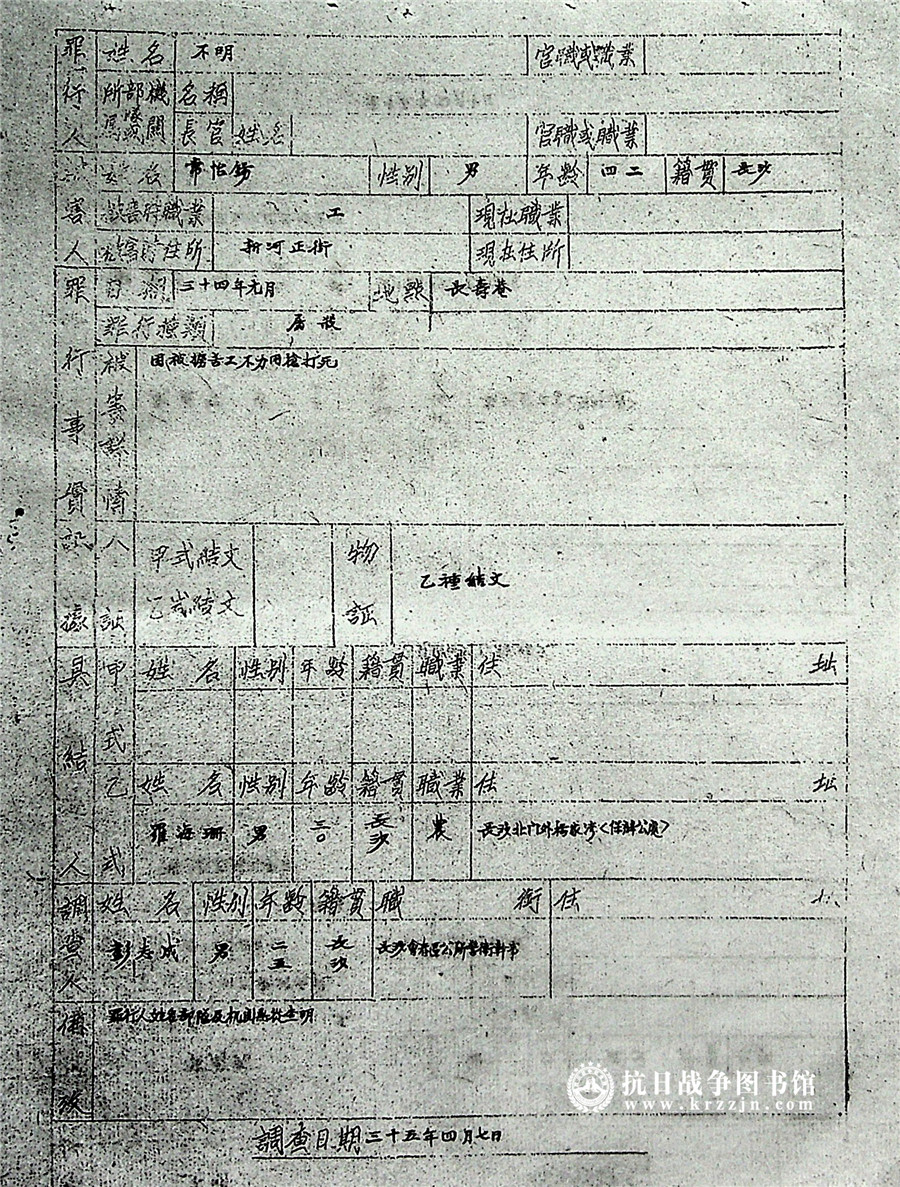 罪行人 姓名 不明 官職或職業
所屬部隊或機關 名稱
長官姓名 官職或職業
被害人 姓名 常怡錫 性别 男 年齡 四二 籍貫 長沙
被害時職業 工 現在職業
被害時住所 新河正街 現在住所
罪行事實 日期 三十四年元月 地點 長壽巷
罪行種類 屠殺
被害詳情 因被擄苦工不力用槍打死
証據 人証 甲式結文 乙式結文 物証 乙種結文
具結人 甲式 姓名 性别 年齡 籍貫 職業 住址
乙式 姓名 性别 年齡 籍貫 職業 住址
羅海珊 男 三〇 長沙 農 長沙北门外楊家湾〈保辦公處〉
調查人 姓名 性别 年齡 籍貫 職銜 住址
彭志成 男 二五 長沙 長沙會春區公所警衛幹事
備攷 罪行人姓名部隊及机関無從查明
調查日期 三十五年四月七日
抗日战争图书馆
www.krzzjn.com